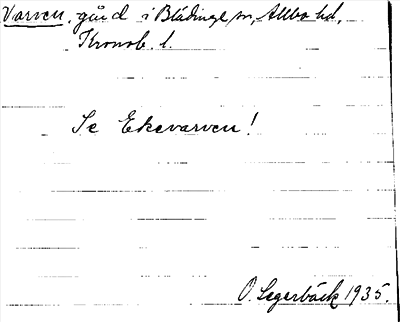 Varven, gård i Blädinge sn, Allbo hd,
Kronob. l.
Se Ekevarven!
O. Segerbäck 1935.